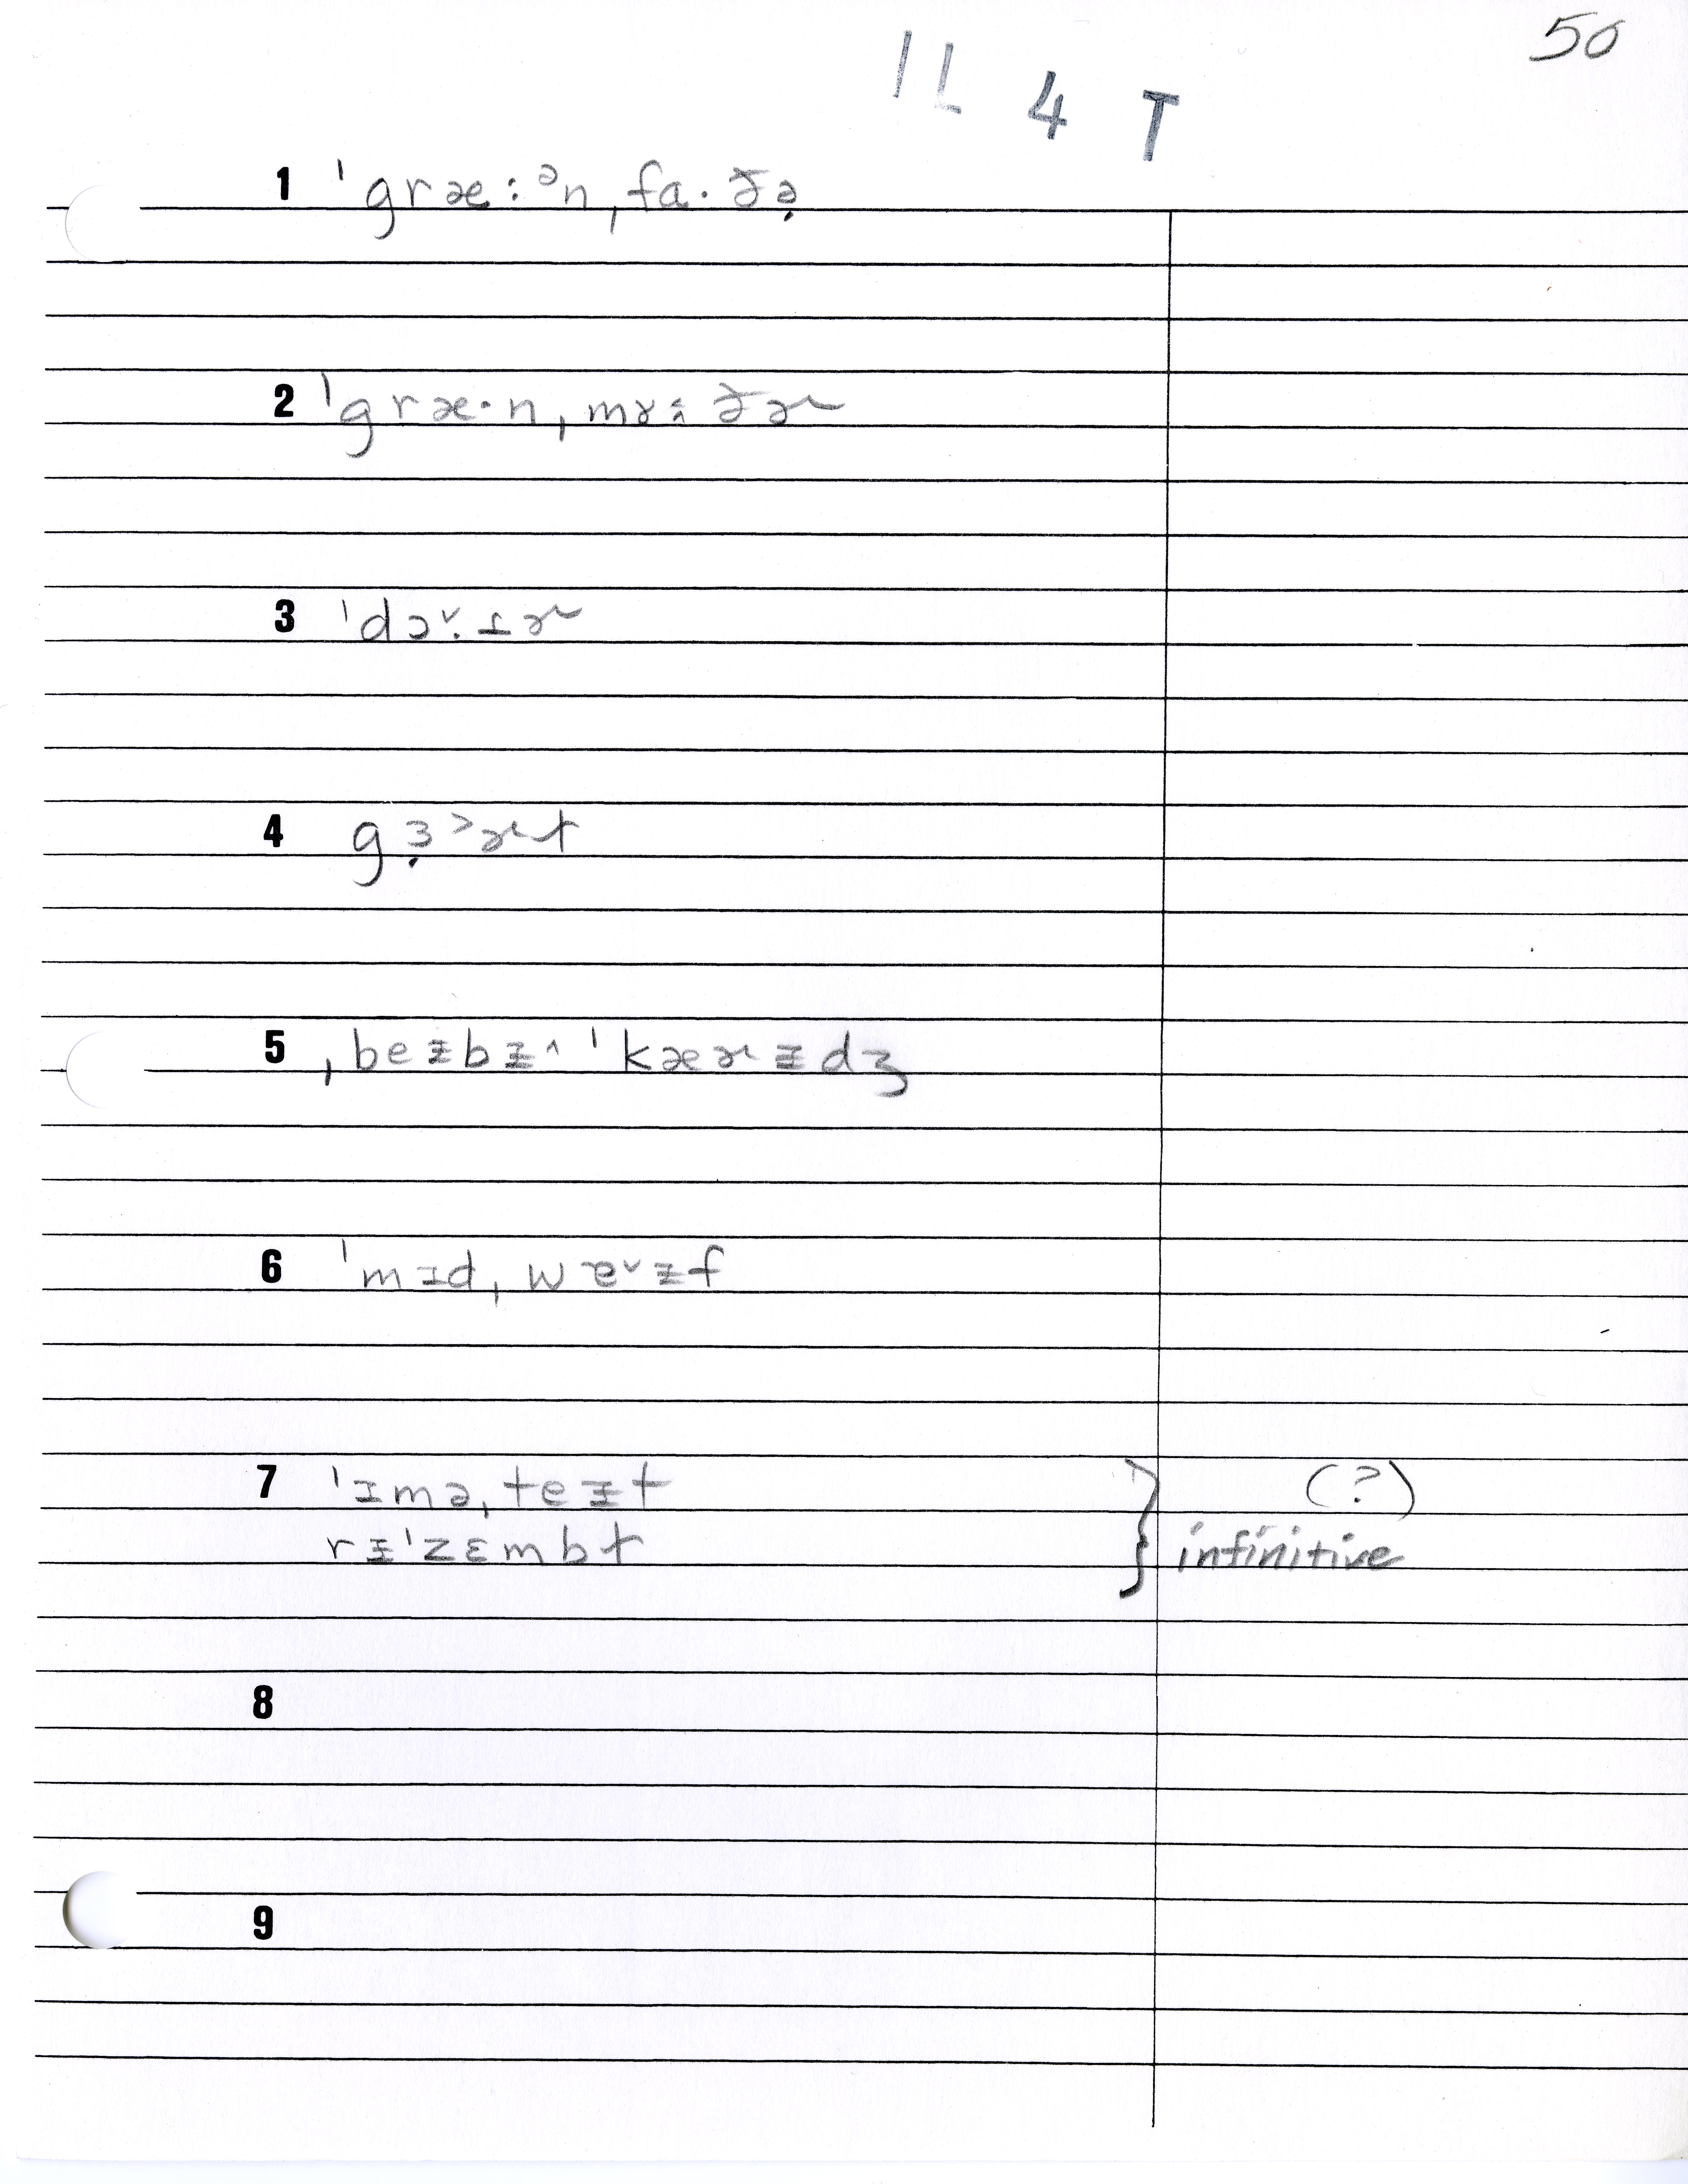 50
1L 4 T
1 ˈgræ:ᵊnˌfa·ð̵ə̣
2 ˈgræ·nˌmɤ:ð̵ɚ
3 ˈdɔ˅·ɨɚ
4 gɜ̣˃ɚt
5 ˌbeᵻbᵻ˄ ˈkæɚᵻdʒ
6 ˈmɪdˌwɐ˅ᵻf
7 ˈɪməˌteᵻt } (?)
rᵻˈzɛmbt infinitive
8
9